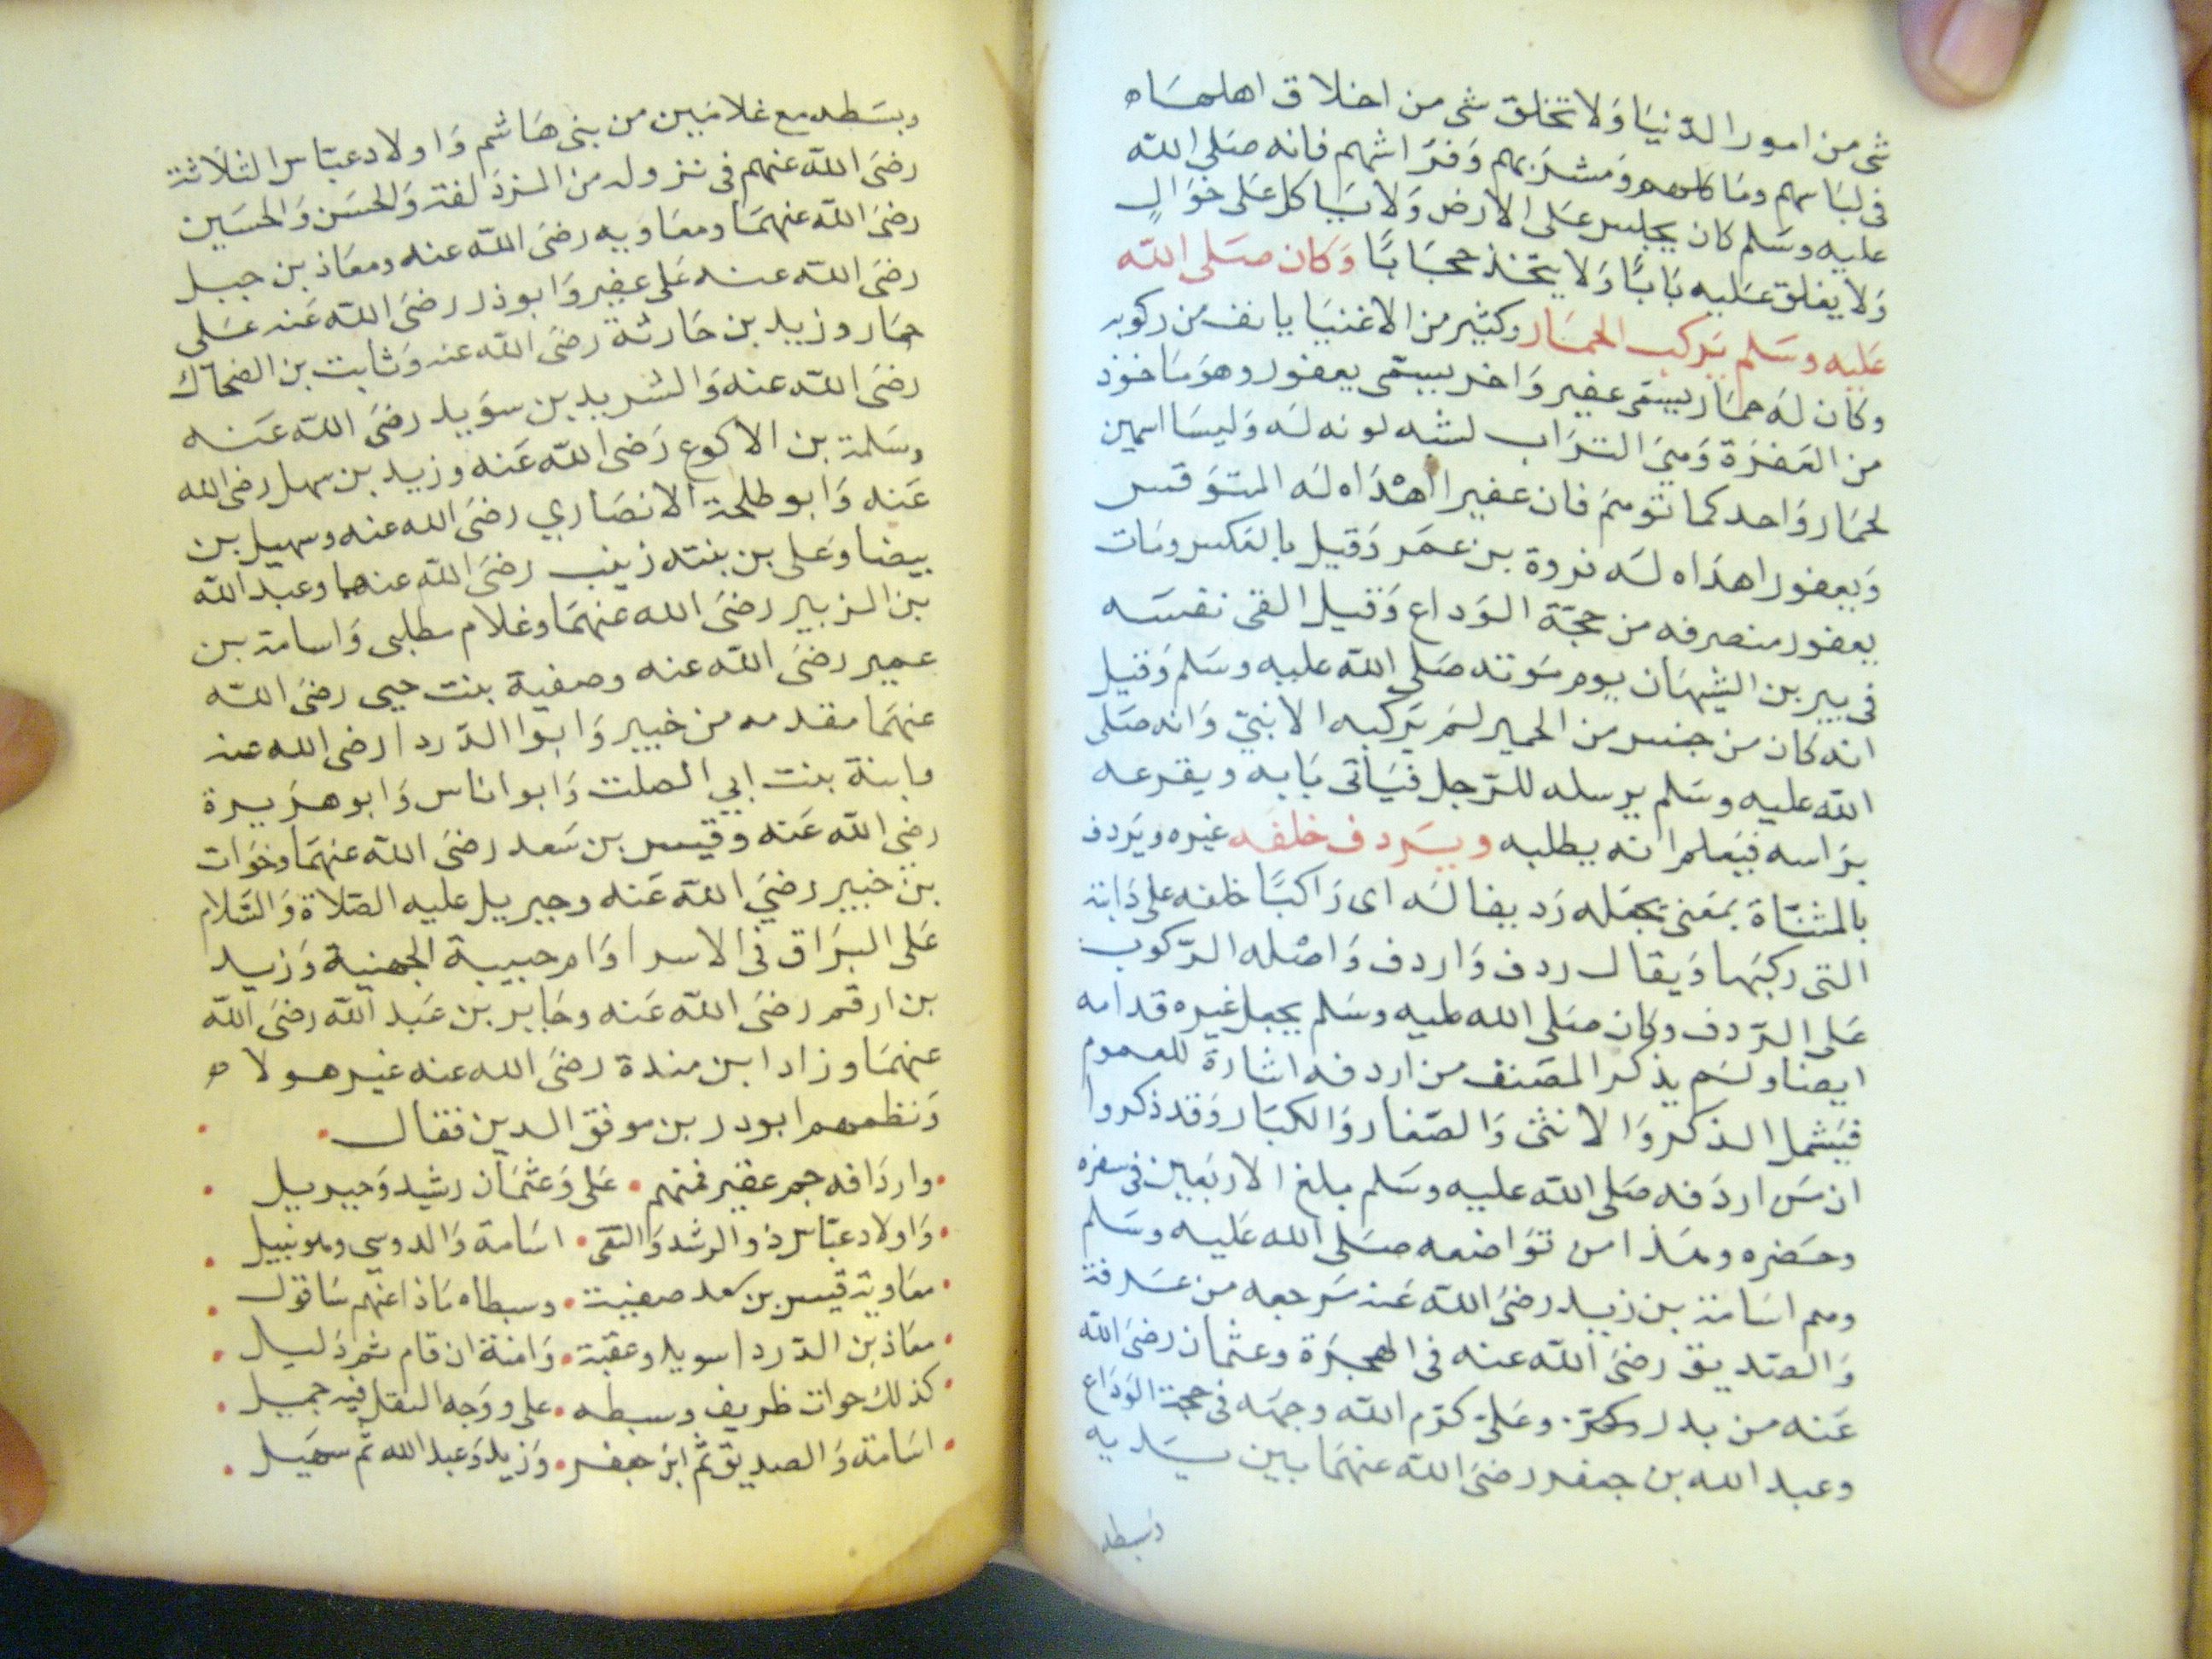 شى من امور الدّنيَا وَلا تخلق شى من اخلاق اهلهَا
فى لبَاسهم ومَا كلهم وَمشرَبهم وَفرَاشهم فانه صَلى الله
عليه وسَلم كان يجلس عَلى الارض وَلا يَاكل عَلى خوَان
وَلا يغلق عَليه بَابًا وَلا يتخذ حجَابًا وَكان صَلى الله
عَليه وسَلم يَركب الحمَار وكثير من الاغنيَا يانف من ركوبه
وكان لَه حمَار يسمّى عفير وَاخر يسمّى يعفور وهوَ مَاخوذ
من العَفرَة وَهيَ الترَاب لشبه لونه لَه وَليسَا اسمين
لحمَار وَاحد كما توهمَ فان عفيرا اهْدَاه لَه المقوقس
وَيعفور اهدَاه لَه فروة بن عمَر وَقيل بالعَكس ومَات
يعفور منصرفه من حجّة الوَداع وَقيل القى نفسَه
فى بير بن التيهَان يوم مَوته صَلى الله عليه وسَلم وَقيل
انه كان من جنس من الحمير لم يَركبه الا نبيّ وَانه صَلى
الله عليه وسَلم يرسله للرّجل فيَاتى بَابه ويقرعه
برَاسه فيَعلم انه يطلبه ويَردف خلفَه غيره ويَردف
بالمثنّاة بمَعنى يجعَله رَديفا لَه اى رَاكبًا خلفه على دَابته
التى ركبَها وَيقال ردف وَاردف وَاصْله الرّكوب
عَلى الرّدف وكان صَلى الله عليه وسَلم يجعل غيره قدامه
ايضا ولَم يذكر المصَنف من اردفه اشارة للعموم
فيَشمل الذكر وَالانثى وَالصّغار وَالكبَار وَقد ذكروا
ان مَن اردَفه صَلى الله عليه وسَلم بلغ الاربَعين فى سفره
وحَضره وهَذا من توَاضعه صَلى الله عَليه وسَلم
وهم اسَامة بن زيد رضىَ الله عَنه مَرجعه من عَرفة
وَالصّديق رضىَ الله عنه فى الهجرَة وعثمان رضىَ الله
عَنه من بدر وعَلىّ كرّم الله وجهَه فى حجة الوَدَاع
وعبد الله بن جعفر رضىَ الله عنهمَا بين يَديه
وسبطه
وبسَطه مع غلامَين من بنى هَاشم وَاولاد عبّاس الثلاثة
رضىَ الله عنهم فى نزوله من المزدَلفة وَالحسَن وَالحسَين
رضىَ الله عنهمَا ومعَاويه رضىَ الله عنه ومعَاذ بن جبل
رضىَ الله عنه عَلى عفير وَابو ذر رضىَ الله عَنه عَلى
حمَار وزيد بن حَارثة رضىَ الله عنه وَثابت بن الضحاك
رضىَ الله عنه وَالشريد بن سوَيد رضىَ الله عَنه
وسَلمة بن الاكوع رَضى الله عَنه وزيد بن سهل رضى الله
عَنه وَابو طلحة الانصَاري رضىَ الله عنه وسهيل بن
بيضا وعَلى بن بنته زينب رضىَ الله عنهما وعبد الله
بن الزبير رضىَ الله عنهمَا وغلام مطلبى وَاسامة بن
عمير رضىَ الله عنه وصفية بنت حيى رضىَ الله
عنهمَا مقدمه من خيبر وَابوا الدّردا رضى الله عنه
وابنة بنت ابي الصلت وَابو اناس وَابو هرَيرة
رضى الله عَنه وقيس بن سَعد رضىَ الله عنهمَا وخوَات
بن خبير رضيَ الله عَنه وجبريل عليه الصّلاة وَالسّلام
عَلى البرَاق فى الاسرا وَام حبيبة الجهنية وَزيد
بن ارقم رضىَ الله عَنه وجَابر بن عَبد الله رضىَ الله
عنهمَا وزاد ابن مندة رضىَ الله عنه غير هولا
وَنظمهم ابو در بن موفق الدين فقال
واردَافه جم غفير فمنهم • عَلى وَعثمَان رشيد وَجبريل
وَاولاد عبّاس ذو الرشد وَالتقى • اسَامة وَالدوسى وهو نبيل
معَاوية قيس بن سعد صفية • وسبطاه مَاذا عنهم سَاقول
معَاذ بن الدّردا سويد وعقبة • وَامنة ان قام ثم دَليل
كذلك خوات ظريف وسبطه • على ووَجه النقل فيه جميل
اسَامة وَالصديق ثمّ ابن جعفر • وَزيد وَعبد الله ثمّ سهَيل